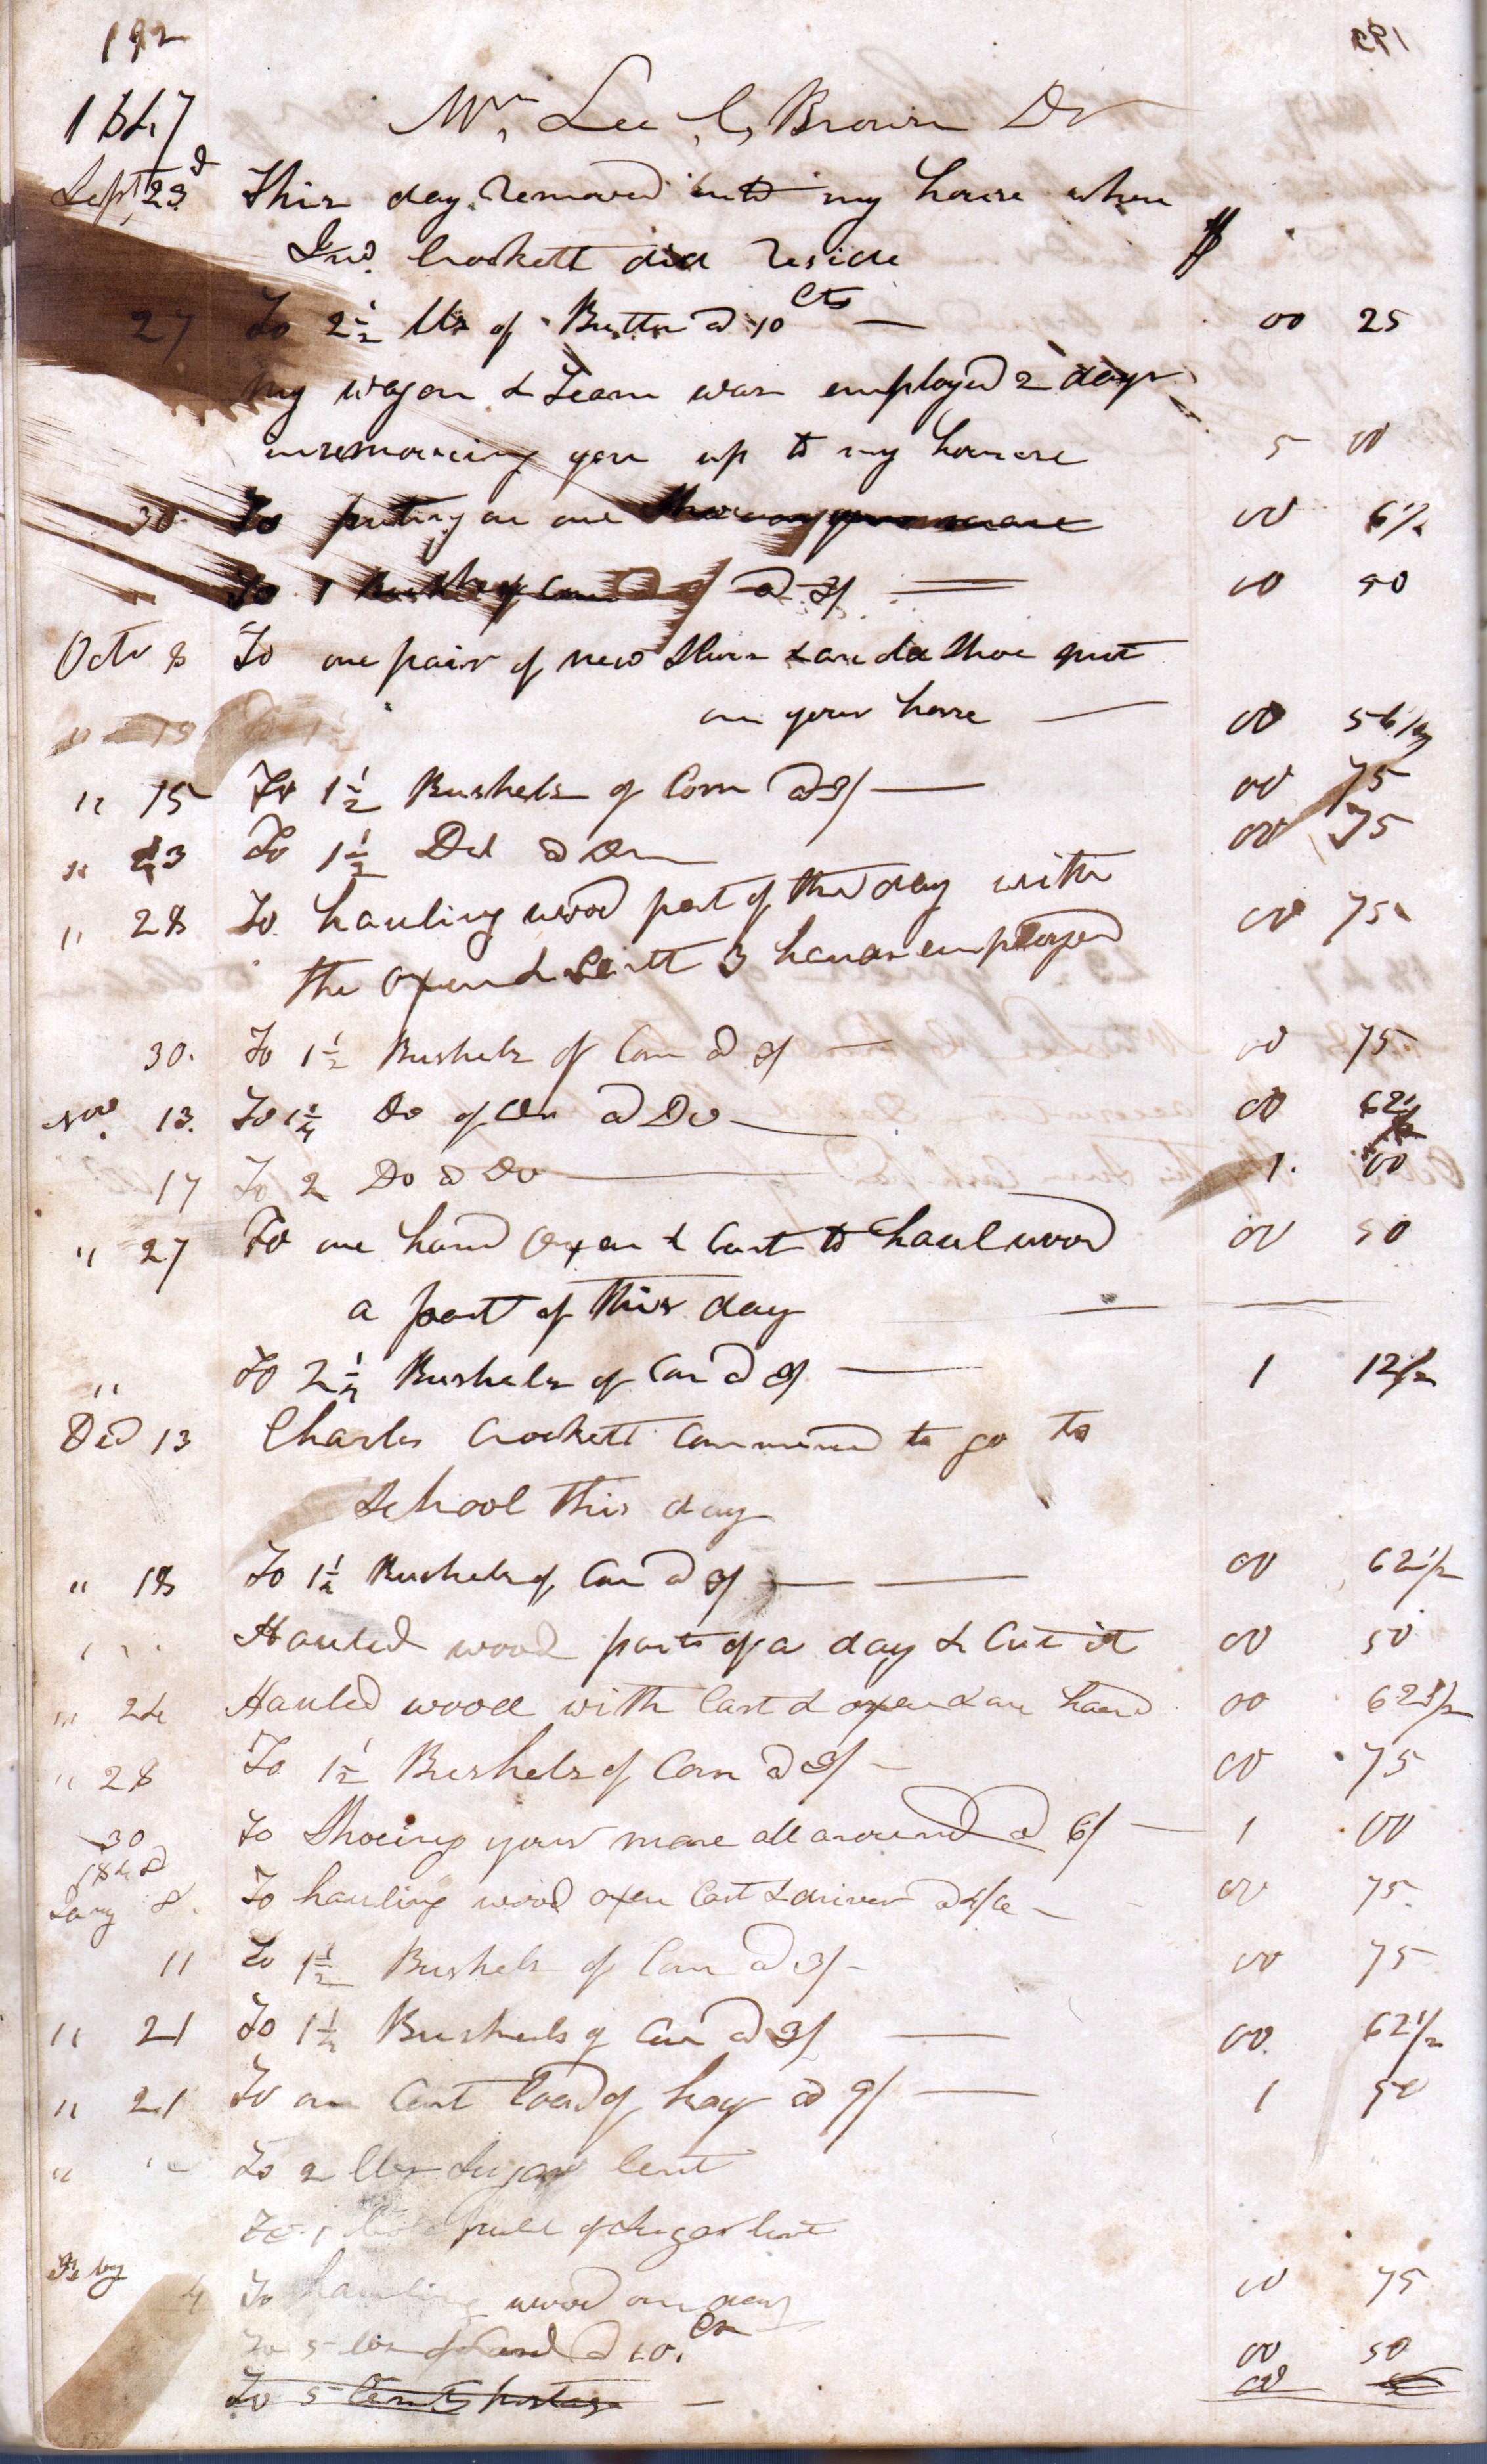 192
1847 Mr, Lee, C, Brown Dr
Sept 23d This day removed into my house when
Jno. Crockett did reside $
27 To 2 1/2 lbs of Butter @ 10 Cts — 00 25
my wagon & Team was employed 2 days
in removeing you up to my house 5 00
30 To puting on one Shoe on your mare 00 6 1/2
To 1 Bushel of Corn @ 3/ — 00 50
Octr 8 To one pair of new Shoes & one old Shoe put
on your horse — 00 56 1/2
" 15 To 1 1/2
" 15 To 1 1/2 Bushels of Corn @ 3/ — 00 75
" 23 To 1 1/2 Do @ Do — 00 75
" 28 To hauling wood part of the day with 00 75
the Oxen & Cart 3 hands employed
30. To 1 1/2 Bushels of Corn @ 3/ — 00 75
Nov. 13. To 1 1/4 Do of Do @ Do — 00 62 1/2
17 To 2 Do @ Do — 1. 00
" 27 To one hand Oxen & Cart to haul wood 00 50
a part of this day —
" To 2 1/4 Bushels of Corn @ 3/ — 1 12 1/2
Dec 13 Charles Crockett Commenced to go to
School this day
" 18 To 1 1/4 Bushels of Corn @ 3/ — 00 62 1/2
" " Hauled wood parts of a day & Cut it 00 50
" 24 Hauled wood with Cart & oxen & one hand 00 62 1/2
" 28 To 1 1/2 Bushels of Corn @ 3/ — 00 75
30 To Shoeing your mare all around @ 6/ — 1 00
1848
Jany 8. To hauling wood oxen Cart & driver @ 4/6 — 00 75
11 To 1 1/2 Bushels of Corn @ 3/ — 00 75
" 21 To 1 1/4 Bushels of Corn @ 3/ — 00. 62 1/2
" 21 To one Cart load of hay @ 9/ — 1 50
" " To 2 lbs Sugar lent
To 1 full of Sugar lent
Feby
4 To hauling wood one day 00 75
To 5 lbs of Lard @ 10. Cts 00 50
To 5 Cents postage — 00 5